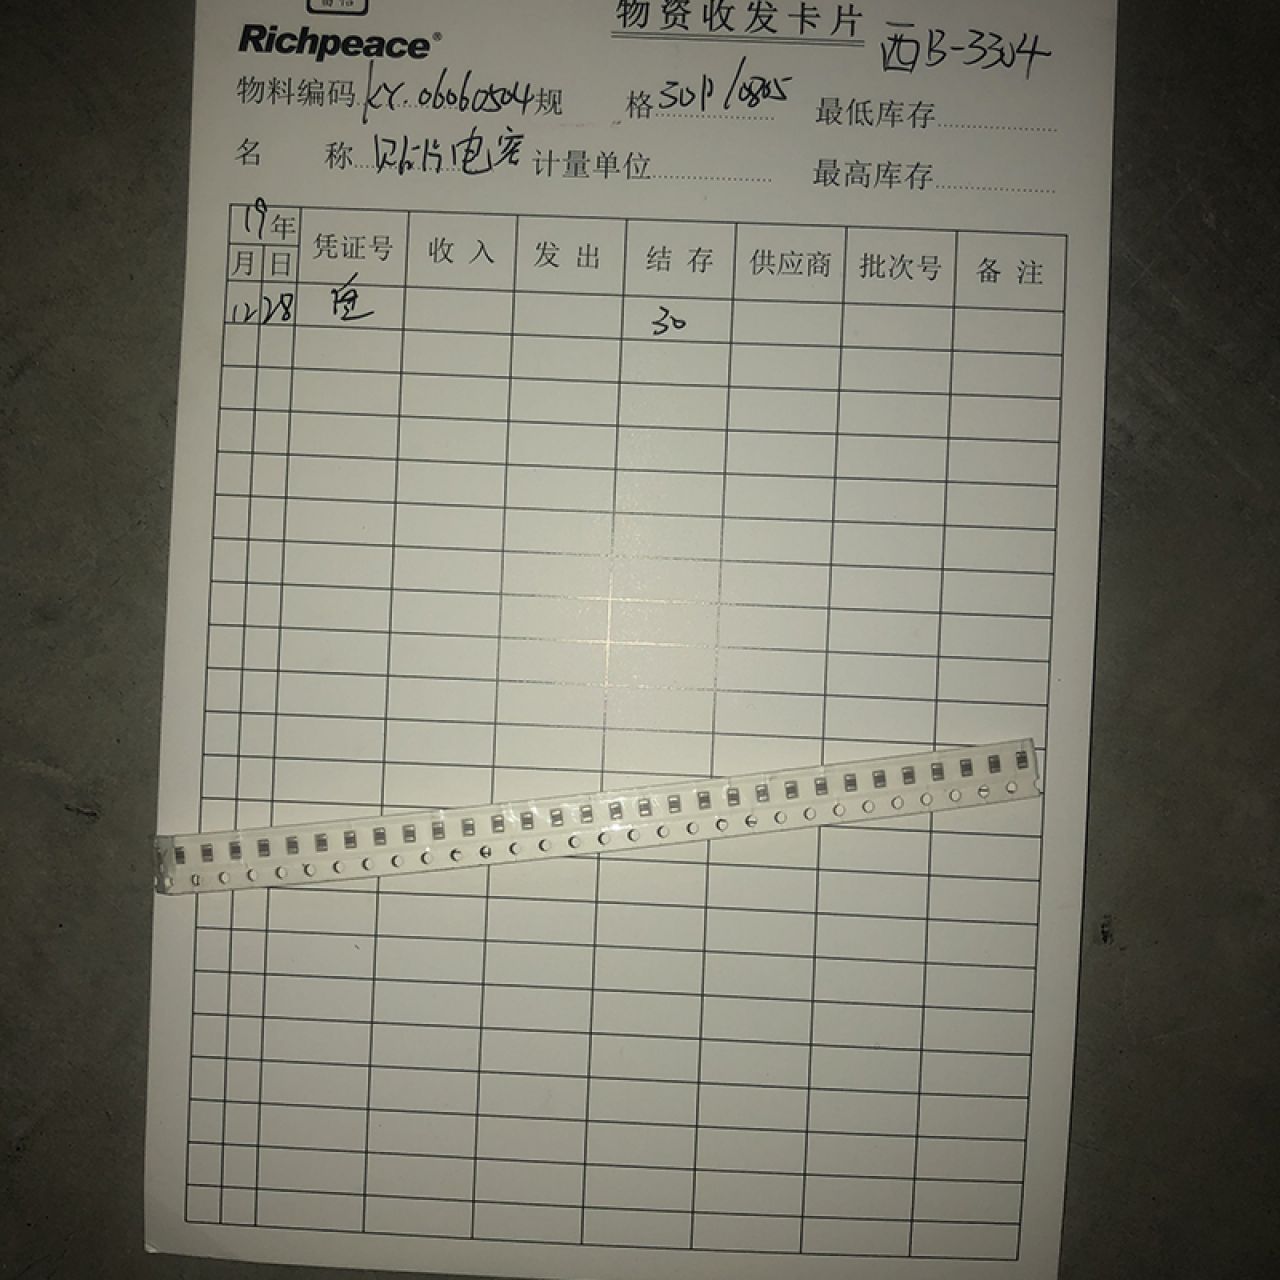 物资收发卡片
Richpeace®
西B-3304
物料编码 KY.06060504 规格 30P/0805 最低库存
名称 贴片电容 计量单位 最高库存
19年 凭证号 收入 发出 结存 供应商 批次号 备注
月 日
12 28 30